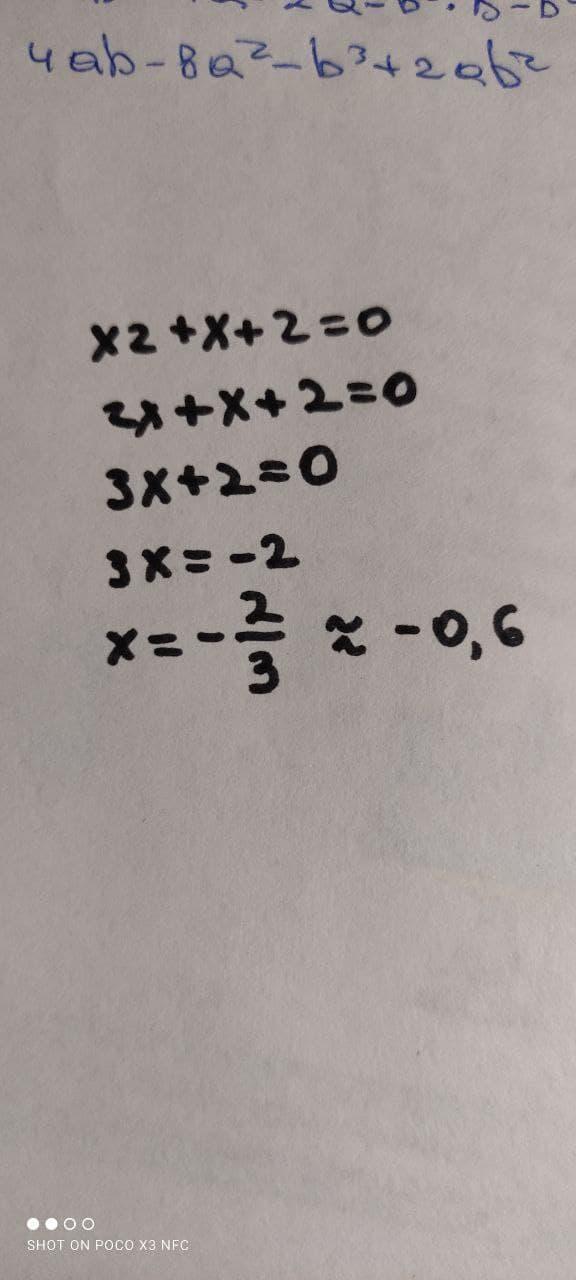 4ab-8a²-b³+2ab²
x2+x+2=0
2x+x+2=0
3x+2=0
3x=-2
x=-2/3 ≈ -0,6
SHOT ON POCO X3 NFC